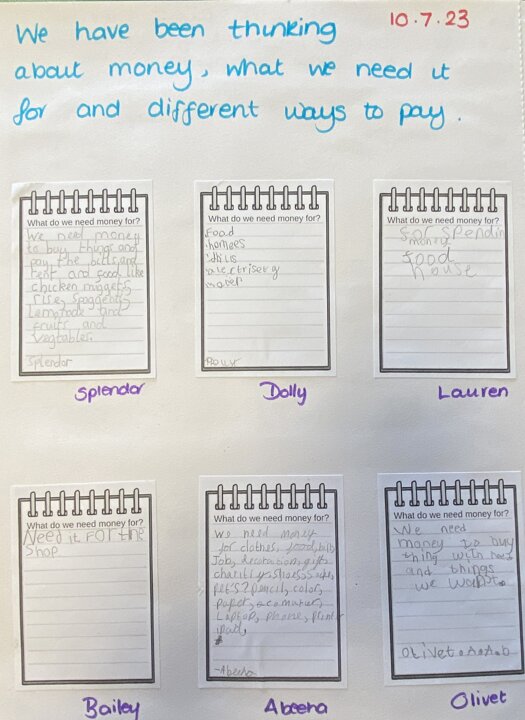 10.7.23
We have been thinking
about money, what we need it
for and different ways to pay.
What do we need money for?
We need money
to buy things and
pay the bills and
rent and food like
chicken nuggets,
rise, spaggenti,
Lemonade and
fruits and
vegtables.
Splendor
Splendor
What do we need money for?
food
homees
bils
Dolly
What do we need money for?
for spendin
money
food
house
Lauren
What do we need money for?
Need it FOR the
Shop
Bailey
What do we need money for?
We need money
for clothes, food, bills
Job, decorations, gifts
charity, shoes,
pet's? pencil, color,
paper,
Laptop, phone, printer
ipad,
-Abeeha
Abeeha
What do we need money for?
We need
money to buy
thing with need
and things
we want.
Olivet
Olivet